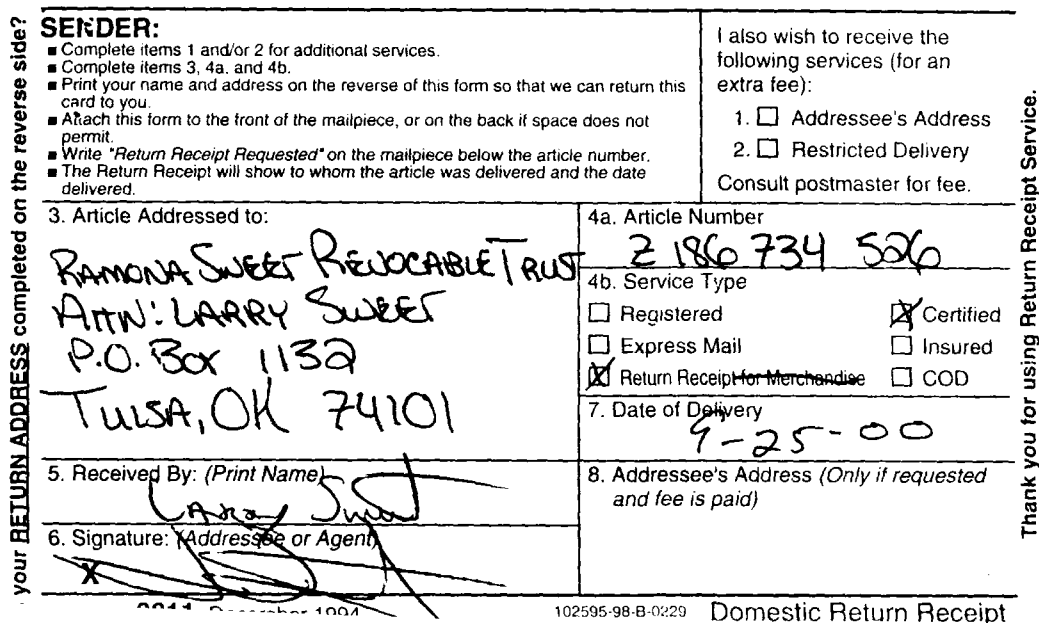 your RETURN ADDRESS completed on the reverse side?
SENDER:
■ Complete items 1 and/or 2 for additional services.
■ Complete items 3, 4a, and 4b.
■ Print your name and address on the reverse of this form so that we can return this
card to you.
■ Attach this form to the front of the mailpiece, or on the back if space does not
permit.
■ Write "Return Receipt Requested" on the mailpiece below the article number.
■ The Return Receipt will show to whom the article was delivered and the date
delivered.
I also wish to receive the
following services (for an
extra fee):
1. ☐ Addressee's Address
2. ☐ Restricted Delivery
Consult postmaster for fee.
3. Article Addressed to:
RAMONA SWEET REVOCABLE TRUST
ATTN: LARRY SWEET
P.O. Box 1132
TULSA, OK 74101
4a. Article Number
Z 186 734 526
4b. Service Type
☐ Registered ☒ Certified
☐ Express Mail ☐ Insured
☒ Return Receipt for Merchandise ☐ COD
7. Date of Delivery
9-25-00
5. Received By: (Print Name)
Larry Sweet
6. Signature: (Addressee or Agent)
X
8. Addressee's Address (Only if requested
and fee is paid)
3811, December 1994
102595-98-B-0229 Domestic Return Receipt
Thank you for using Return Receipt Service.